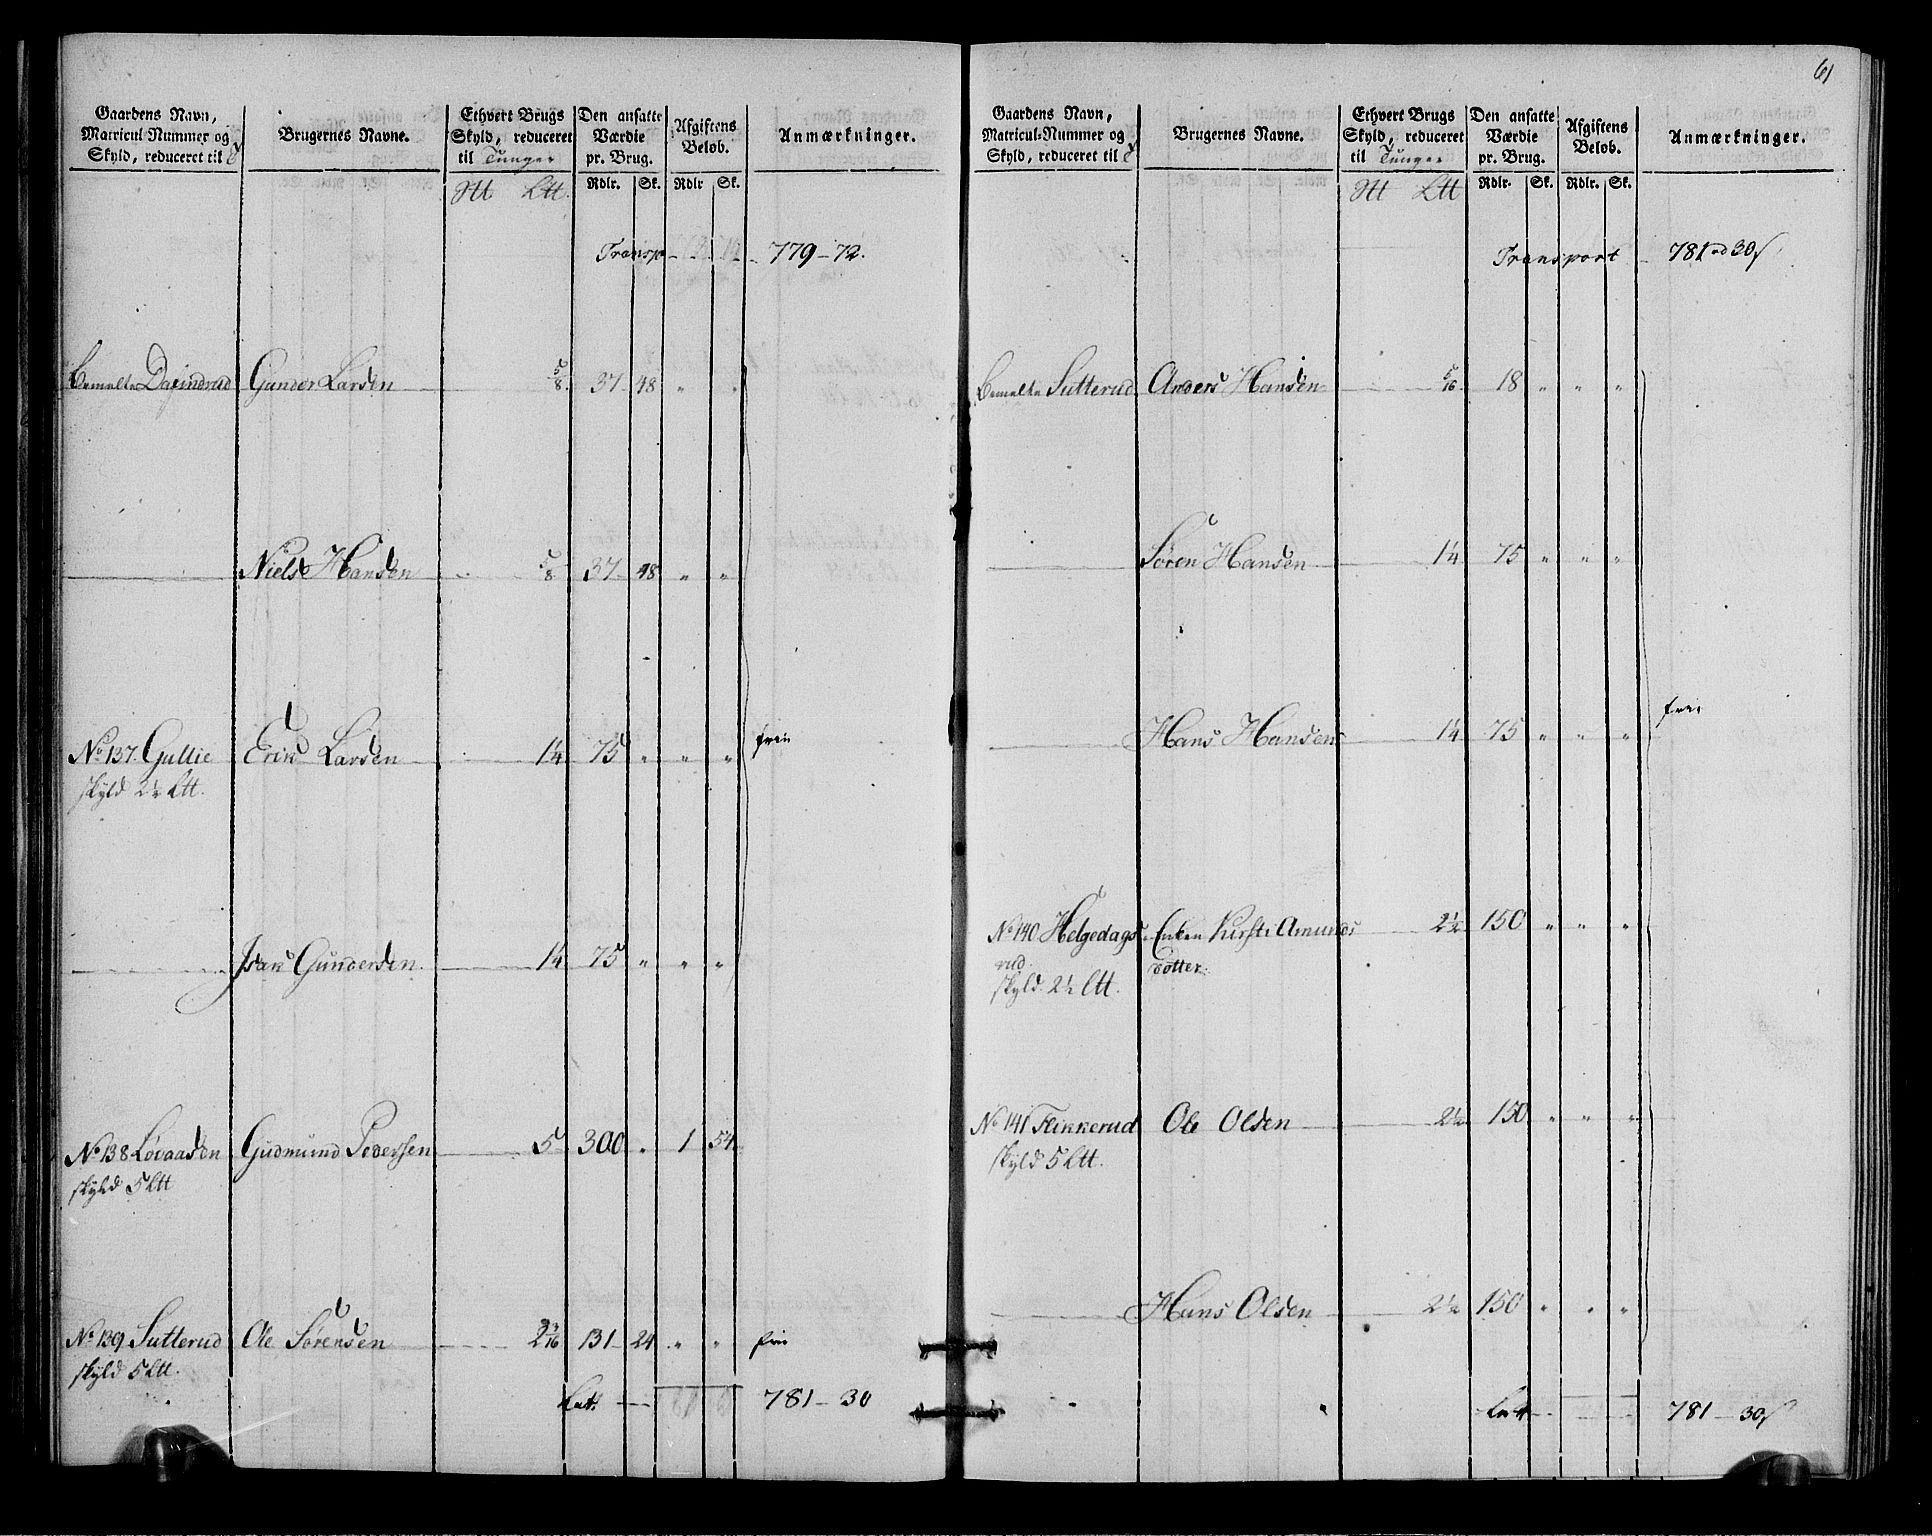 61
Gaardens Navn, Matricul-Nummer og Skyld, reduceret til | Brugernes Navne. | Ethvert Brugs Skyld, reduceret til Tunger | Den ansatte Værdie pr. Brug. | Afgiftens Beløb. | Anmærkninger.
Rdlr. Sk. Rdlr Sk.
Transp 779 - 72.
Bemelte Gunder Larsen 5/8. 37 - 48 " "
Niels Hansen 5/8 37 - 48 " "
No 137. Gullie Erik Larsen 1¼ 75 " " " frie
skyld 2½ Ltt.
Isak Gundersen 1¼ 75 " " "
No 138 Løvaasen Gudmund Pedersen 5 300 " 1 54
skyld 5 Ltt
No 139 Sutterud Ole Sørensen 2 3/16 131 - 24 " " frie
skyld 5 Ltt.
Lat. 781 - 30
Gaardens Navn, Matricul-Nummer og Skyld, reduceret til | Brugernes Navne. | Ethvert Brugs Skyld, reduceret til Tunger | Den ansatte Værdie pr. Brug. | Afgiftens Beløb. | Anmærkninger.
Ltt Rdlr. Sk. Rdlr. Sk.
Transport 781 rd 30 s
Bemelte Sutterud Anders Hansen 5/16 18 " " "
Søren Hansen 1¼ 75 " " "
Hans Hansen 1¼ 75 " " " frie
No 140 Helgedags Enken Kirsti Amunds 2½ 150 " " "
rud dotter
skyld 2½ Ltt.
No 141 Flikkerud Ole Olsen 2½ 150 " " "
skyld 5 Ltt.
Hans Olsen 2½ 150 " " "
Lat 781 - 30 s